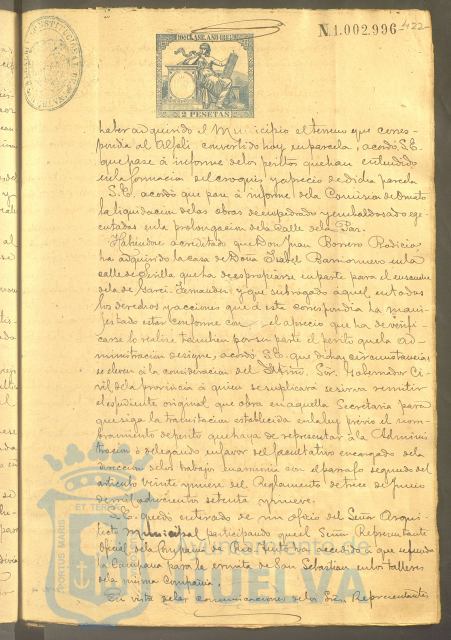 N.1.002.996
422
100 CLASE. AÑO 1887
2 PESETAS
haber adquirido el Municipio el terreno que corres-
pondia al Alfolí, convertido hoy en parcela, acordó S.E.
que pase á informe de los peritos que han entendido
en la formacion del croquis y aprecio de dicha parcela
S.E. acordó que pase á informe de la Comision de Ornato
la liquidacion de las obras de empedrado y embaldosado eje-
cutadas en la prolongacion de la Calle de la Paz.
Habiéndose acreditado que Don Juan Borrero Rodicio
ha adquirido la casa de Doña Isabel Barnonuevo en la
calle de Sevilla que ha de expropiarse en parte para el ensanche
de la de Garci-Fernandez y que subrogado aquel en todos
los derechos y acciones que á esta correspondia ha mani-
festado estar conforme con el aprecio que ha de verifi-
carse lo realice tambien por su parte el perito que la ad-
ministracion designe, acordó S.E. que dichas circunstancias
se eleven á la consideracion del Iltmo. Sor. Gobernador Ci-
vil de la provincia á quien se suplicará se sirva remitir
el expediente original que obra en aquella Secretaría para
que siga la tramitacion establecida en la ley previo el nom-
bramiento de perito que haya de representar á la Adminis
tracion ó delegando en favor del facultativo encargado de la
direccion de los trabajos en armonia con el párrafo segundo del
artículo veinte y nueve del Reglamento de trece de Junio
de mil ochocientos setenta y nueve.
S.E. quedó enterado de un oficio del Señor Arqui-
tecto Municipal participando que el Señor Representante
Oficial de la Compañia de Rio-tinto ha accedido á que se funda
la Campana para la ermita de San Sebastian en los talleres
de la misma Compañia.
En vista de las comunicaciones de los Sres. Representantes
PORTUS MARIS
ET TERRÆ
HUELVA